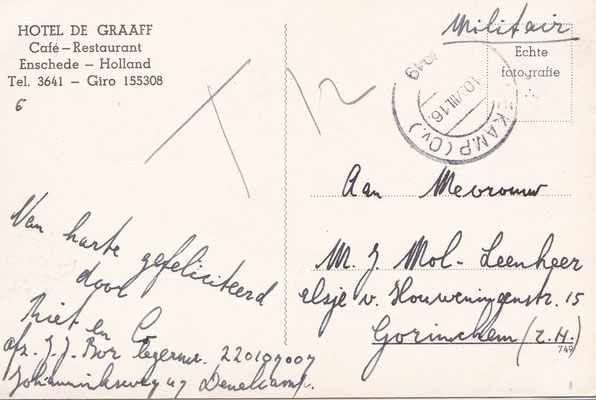 HOTEL DE GRAAFF
Café – Restaurant
Enschede – Holland
Tel. 3641 – Giro 155308
6
T 12
Militair
Echte
fotografie
1949
10.VIII.16
EKAMP (Ov.)
Aan Mevrouw
M. J. Mol - Leenheer
Elsje v. Houweningenstr. 15
Gorinchem (Z.H.)
749
Van harte gefeliciteerd
door
Riet en G
afz. J. J. Bor legernr. 220109007
Johanninksweg 47 Denekamp.